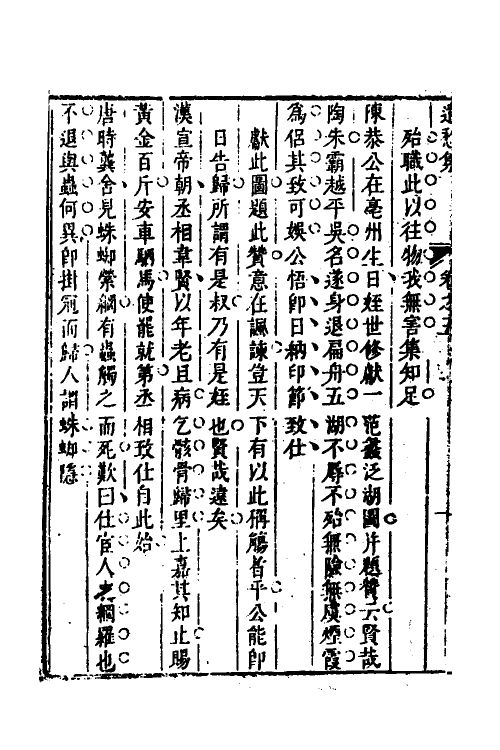 遣愁集　卷之五
殆職此以往物我無害集知足
陳恭公在亳州生日姪世修獻一范蠡泛湖圖并題贊云賢哉
陶朱霸越平吳名遂身退扁舟五湖不辱不殆無險無虞煙霞
為侶其致可娛公悟即日納印節致仕
獻此圖題此贊意在諷諫豈天下有以此稱觴者乎公能即
日告歸所謂有是叔乃有是姪也賢哉遠矣
漢宣帝朝丞相韋賢以年老且病乞骸骨歸里上嘉其知止賜
黃金百斤安車駟馬使罷就第丞相致仕自此始
唐時龔舍見蛛蝴縈網有蟲觸之而死歎曰仕宦人之網羅也
不退與蟲何異即掛冠而歸人謂蛛蝴隱